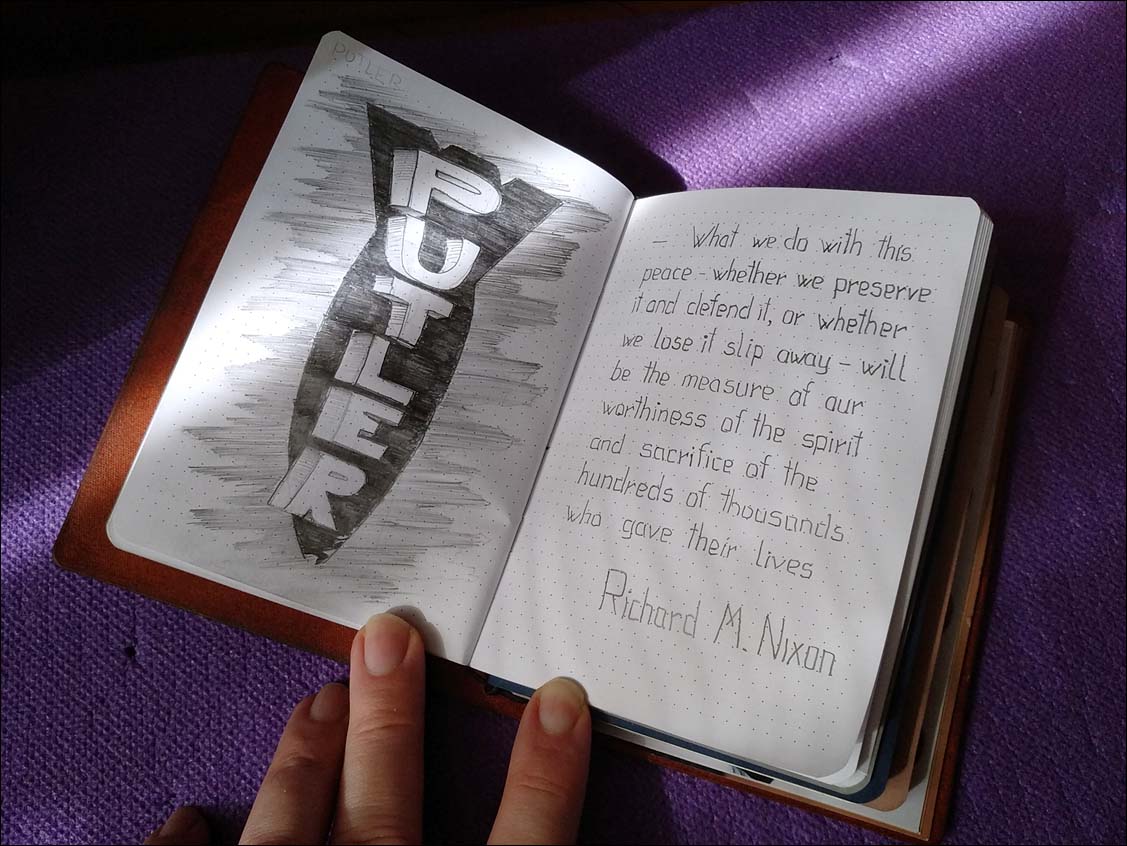 PUTLER
PUTLER
— What we do with this
peace - whether we preserve
it and defend it, or whether
we lose it slip away - will
be the measure of our
worthiness of the spirit
and sacrifice of the
hundreds of thousands
who gave their lives
Richard M. Nixon